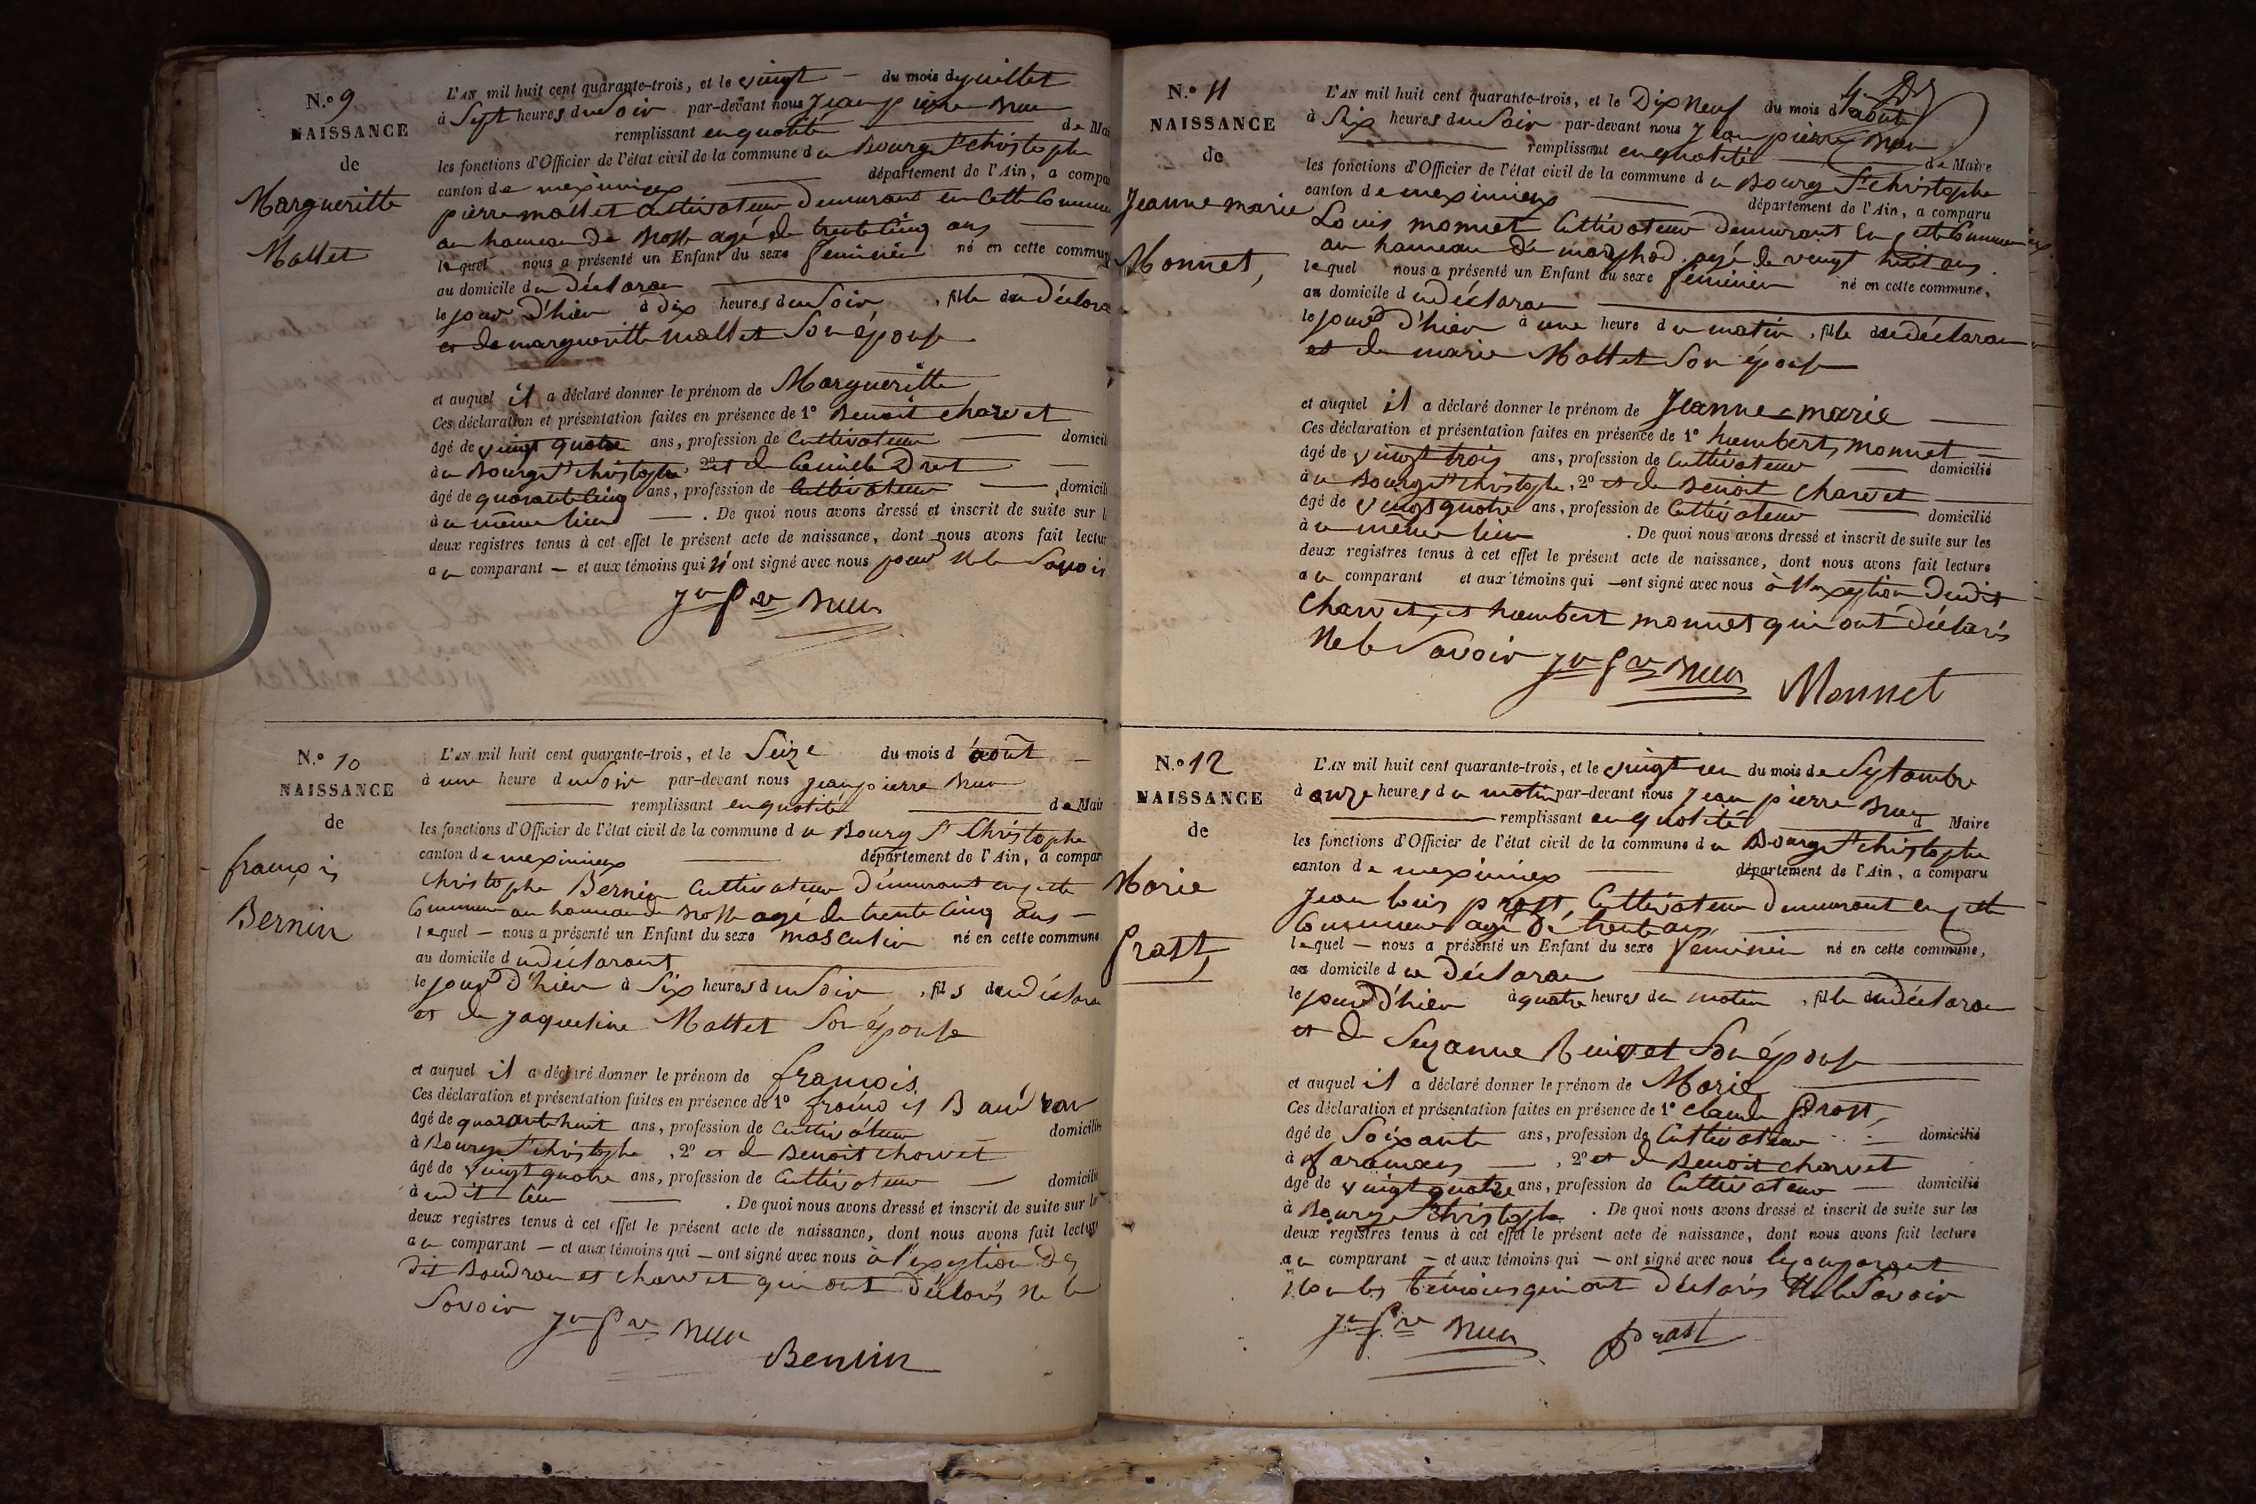 N.o 9
NAISSANCE
de
Margueritte
Mallet
L'AN mil huit cent quarante-trois, et le vingt — du mois de juillet
à Sept heures du Soir par-devant nous Jean pierre
remplissant en qualité de Mai
les fonctions d'Officier de l'état civil de la commune du Bourg St Christophe
canton de meximieux département de l'Ain, a compa
pierre mallet Cultivateur Demeurant en Cette Commune
au hameau de agé de trente Cinq ans
lequel nous a présenté un Enfant du sexe féminin né en cette commun
au domicile du déclaran
le jour d'hier à Dix heures du Soir, fille du déclara
et de margueritte mallet Son épouse
et auquel il a déclaré donner le prénom de Margueritte
Ces déclaration et présentation faites en présence de 1o Benoit charvet
âgé de vingt quatre ans, profession de Cultivateur domicil
à u Bourg St christophe, 2o et de Camille Dret
âgé de quarante Cinq ans, profession de Cultivateur domicil
à u même lieu — . De quoi nous avons dressé et inscrit de suite sur l
deux registres tenus à cet effet le présent acte de naissance, dont nous avons fait lectur
au comparant — et aux témoins qui n'ont signé avec nous pour Ne le Savoir
Jn Pre
N.o 10
NAISSANCE
de
françois
Bernin
L'AN mil huit cent quarante-trois, et le Seize du mois d'août —
à une heure du Soir par-devant nous Jean pierre
remplissant en qualité de Mair
les fonctions d'Officier de l'état civil de la commune du Bourg St Christophe
canton de meximieux département de l'Ain, a compar
Christophe Bernin Cultivateur Demeurant en Cette
Commune au hameau de agé de trente Cinq ans —
lequel — nous a présenté un Enfant du sexe masculin né en cette commune
au domicile du déclarant
le jour d'hier à Six heures du Soir, fils du déclara
et de Jaqueline Mallet Son épouse
et auquel il a déclaré donner le prénom de françois
Ces déclaration et présentation faites en présence de 1o françois Baudran
âgé de quarante huit ans, profession de Cultivateur domicilié
à Bourg St christophe, 2o et de Benoit charvet
âgé de vingt quatre ans, profession de Cultivateur — domicilié
à udit lieu — . De quoi nous avons dressé et inscrit de suite sur les
deux registres tenus à cet effet le présent acte de naissance, dont nous avons fait lectur
au comparant — et aux témoins qui — ont signé avec nous à l'exeption Des
dit Baudran et charvet qui ont Déclarés Ne le
Savoir Jn Pre
Bernin
N.o 11
NAISSANCE
de
Jeanne marie
Monnet,
L'AN mil huit cent quarante-trois, et le Dix Neuf du mois d'août
à Six heures du Soir par-devant nous Jean pierre
remplissant en qualité de Maire
les fonctions d'Officier de l'état civil de la commune du Bourg St christophe
canton de meximieux département de l'Ain, a comparu
Louis monnet Cultivateur Demeurant en Cette Commune
au hameau de agé de vingt huit ans.
lequel nous a présenté un Enfant du sexe féminin né en cette commune,
au domicile du déclaran
le jour d'hier à une heure du matin, fille du déclaran
et de marie Mallet Son épouse
et auquel il a déclaré donner le prénom de Jeanne marie
Ces déclaration et présentation faites en présence de 1o humbert monnet
âgé de vingt trois ans, profession de Cultivateur domicilié
à u Bourg St christophe, 2o et de Benoit charvet
âgé de vingt quatre ans, profession de Cultivateur domicilié
à u même lieu . De quoi nous avons dressé et inscrit de suite sur les
deux registres tenus à cet effet le présent acte de naissance, dont nous avons fait lecture
au comparant et aux témoins qui — ont signé avec nous à l'exeption Dudit
charvet, et humbert monnet qui ont Déclarés
Ne le Savoir Jn Pre
Monnet
N.o 12
NAISSANCE
de
Marie
Prost
L'AN mil huit cent quarante-trois, et le vingt un du mois de Septambre
à onze heures du matin par-devant nous Jean pierre
remplissant en qualité d Maire
les fonctions d'Officier de l'état civil de la commune du Bourg St christophe
canton de meximiex département de l'Ain, a comparu
Jean louis prost, Cultivateur Demeurant en Cette
Commune agé de trente ans
lequel — nous a présenté un Enfant du sexe féminin né en cette commune,
au domicile du déclaran
le jour d'hier à quatre heures du matin, fille du déclaran
et de Suzanne Son épouse
et auquel il a déclaré donner le prénom de Marie
Ces déclaration et présentation faites en présence de 1o claude Prost,
âgé de Soixante ans, profession de Cultivateur domicilié
à faramans —, 2o et de Benoit charvet
âgé de vingt quatre ans, profession de Cultivateur — domicilié
à Bourg St christophe . De quoi nous avons dressé et inscrit de suite sur les
deux registres tenus à cet effet le présent acte de naissance, dont nous avons fait lecture
au comparant — et aux témoins qui — ont signé avec nous le comparant
Non les témoins qui ont Déclarés Ne le Savoir
Jn Pre
Prost